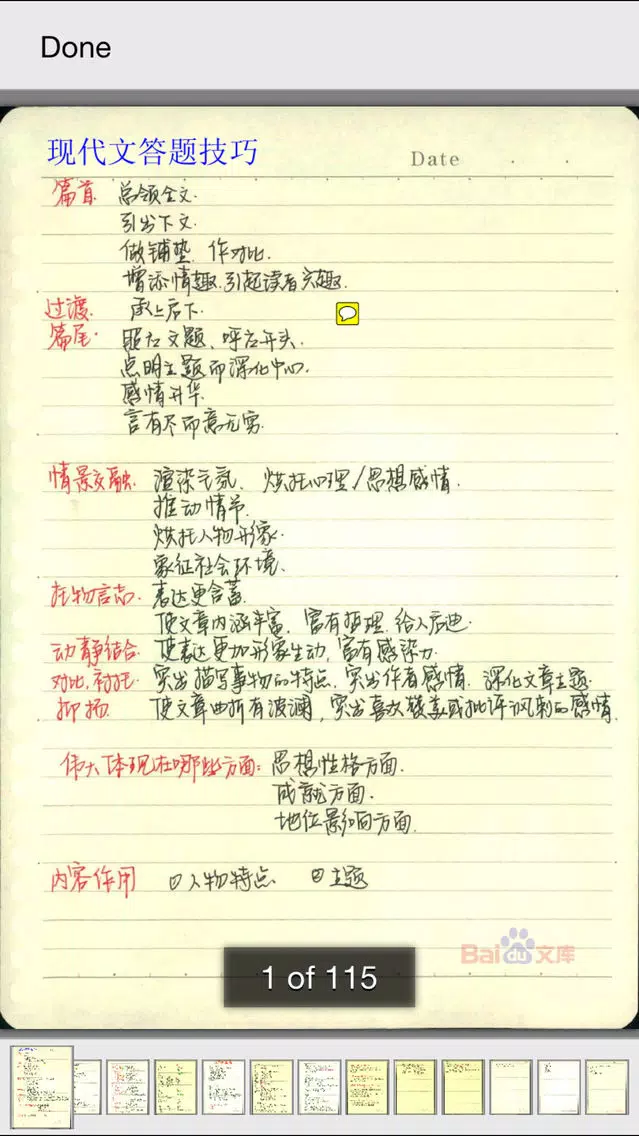 Done
现代文答题技巧
Date
篇首 总领全文.
引出下文.
做铺垫. 作对比.
增添情趣.引起读者兴趣.
过渡. 承上启下.
篇尾. 照应文题、呼应开头.
点明主题而深化中心.
感情升华.
言有尽而意无穷.
情景交融. 渲染气氛、烘托心理/思想感情.
推动情节.
烘托人物形象.
象征社会环境、
托物言志. 表达更含蓄.
使文章内涵丰富, 富有哲理, 给人启迪.
动静结合. 使表达更加形象生动, 富有感染力.
对比,衬托. 突出描写事物的特点, 突出作者感情. 深化文章主题.
抑扬. 使文章曲折有波澜, 突出喜欢赞美或批评讽刺的感情.
伟大体现在哪些方面: 思想性格方面.
成就方面.
地位影响方面.
内容作用 ①人物特点 ②主题
Baidu文库
1 of 115